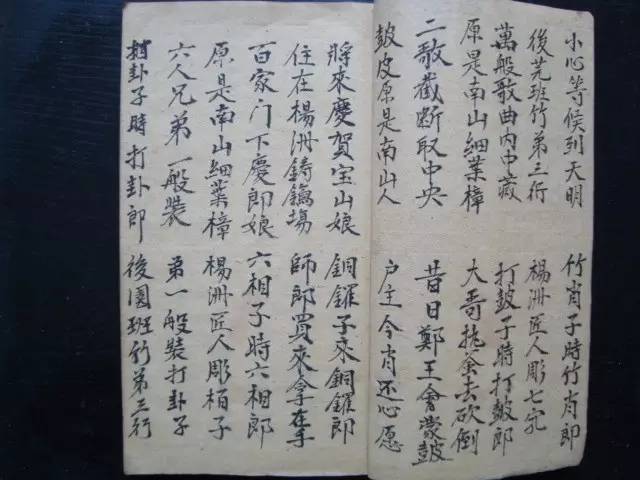 小心等候到天明 竹肖子時竹肖郎
後芫班竹弟三行 楊洲匠人彫七宂
萬般歌曲內中藏 打皷子時打皷郎
原是南山細葉樟 大哥釜去砍倒
二敢截斷取中央 昔日鄭王會蒙皷
皷皮原是南山人 户主今肖还心愿
將來慶賀宝山娘 銅鑼子來銅鑼郎
住在楊洲鋳鑼場 師郎買來拿在手
百家门下慶郎娘 六相子時六相郎
原是南山細葉樟 楊洲匠人彫栢子
六人兄弟一般裝 弟一般裝打卦子
打卦子時打卦郎 後園班竹弟三行